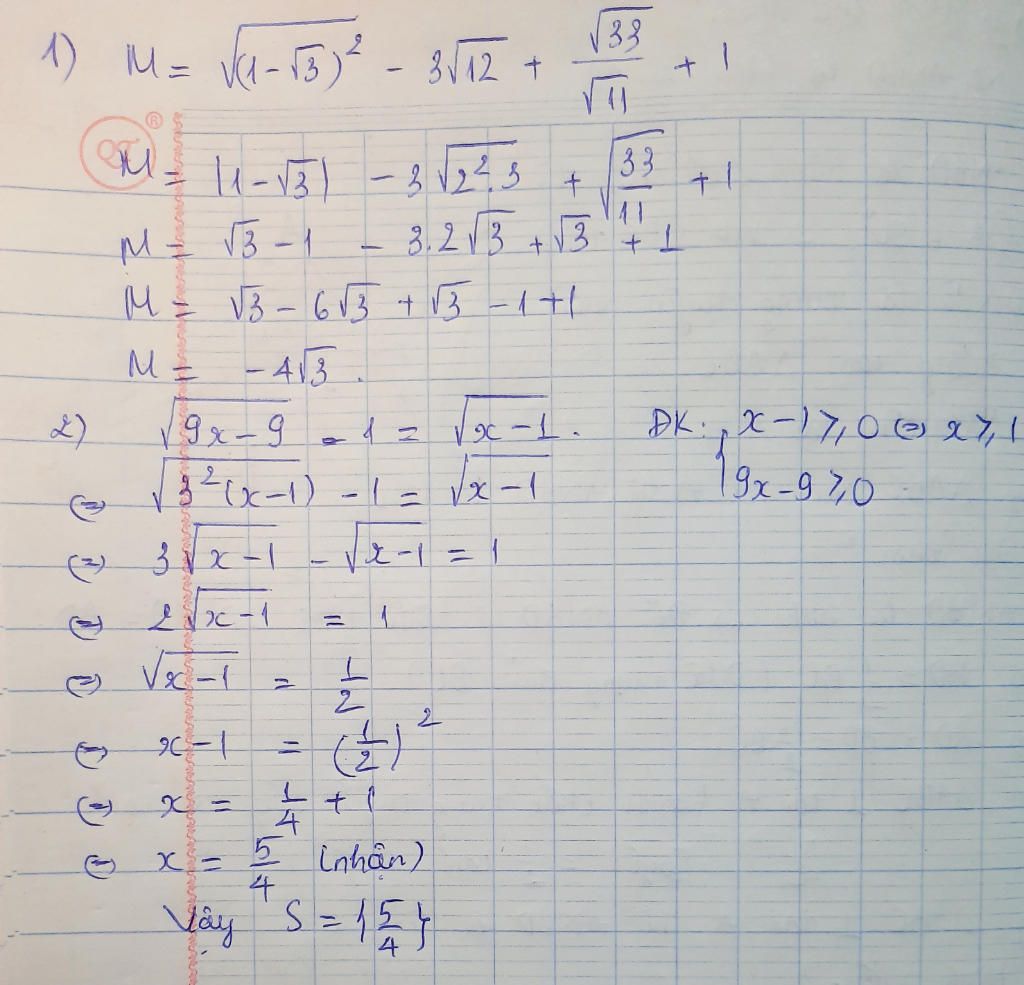 1) M = √(1-√3)² - 3√12 + √33/√11 + 1
M = |1-√3| - 3√2².3 + √33/11 + 1
M = √3 - 1 - 3.2√3 + √3 + 1
M = √3 - 6√3 + √3 - 1 + 1
M = -4√3.
2) √9x-9 - 1 = √x-1. ĐK: { x-1 ⩾ 0 ⇔ x ⩾ 1
⇔ √3²(x-1) - 1 = √x-1 9x-9 ⩾ 0
⇔ 3√x-1 - √x-1 = 1
⇔ 2√x-1 = 1
⇔ √x-1 = 1/2
⇔ x-1 = (1/2)²
⇔ x = 1/4 + 1
⇔ x = 5/4 (nhận)
Vậy S = {5/4}